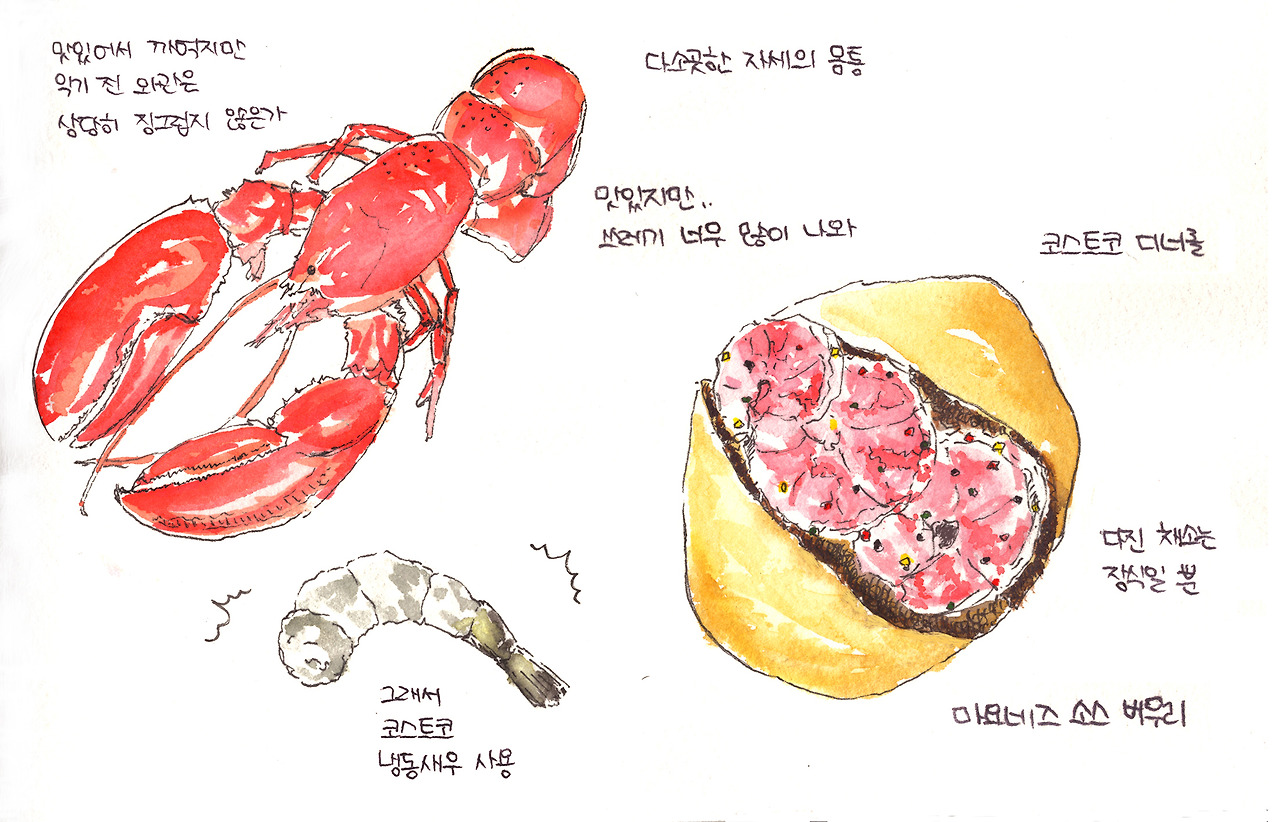 맛있어서 까먹지만
익기 전 외관은
상당히 징그럽지 않은가
다소곳한 자세의 몸통
맛있지만..
쓰레기 너무 많이 나와
코스트코 디너롤
다진 채소는
장식일 뿐
마요네즈 소스 버무리
그래서
코스트코
냉동새우 사용